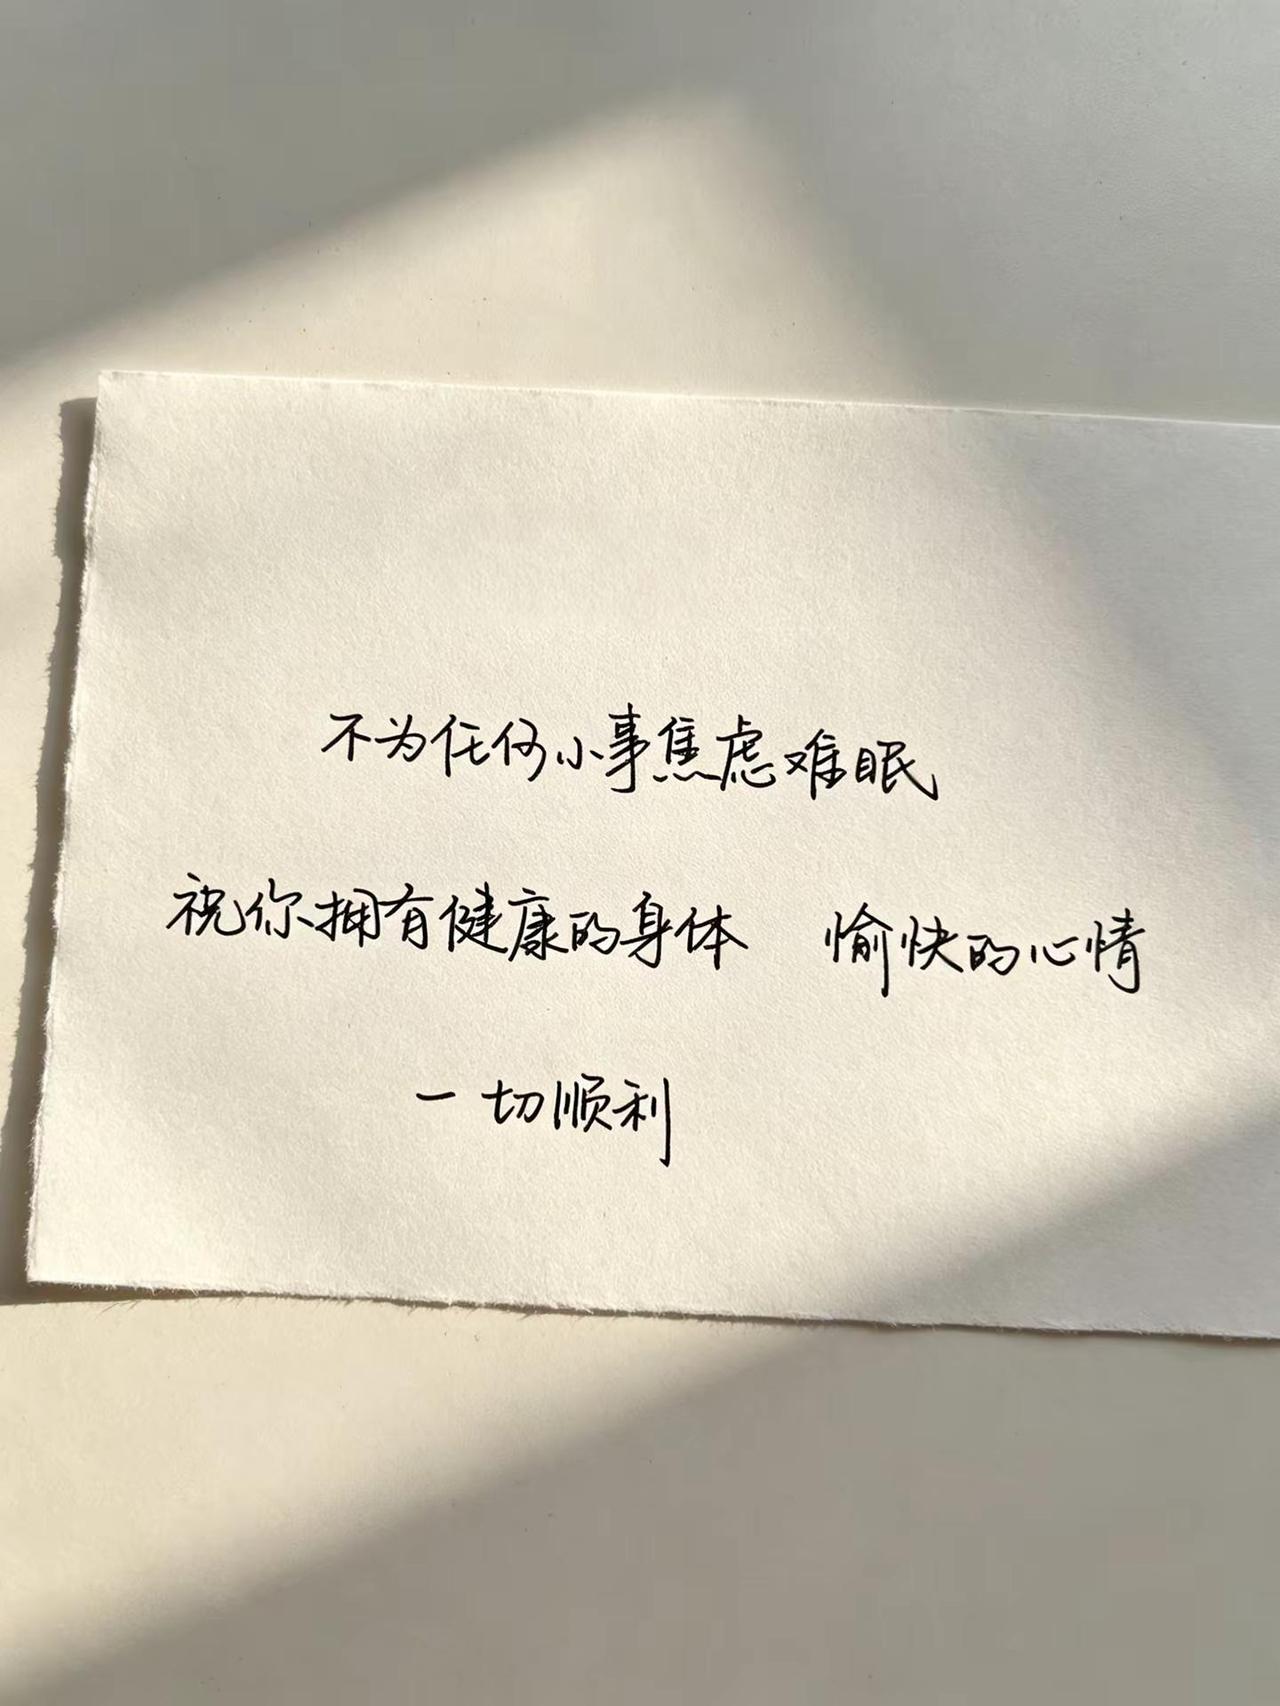 不为任何小事焦虑难眠
祝你拥有健康的身体 愉快的心情
一切顺利